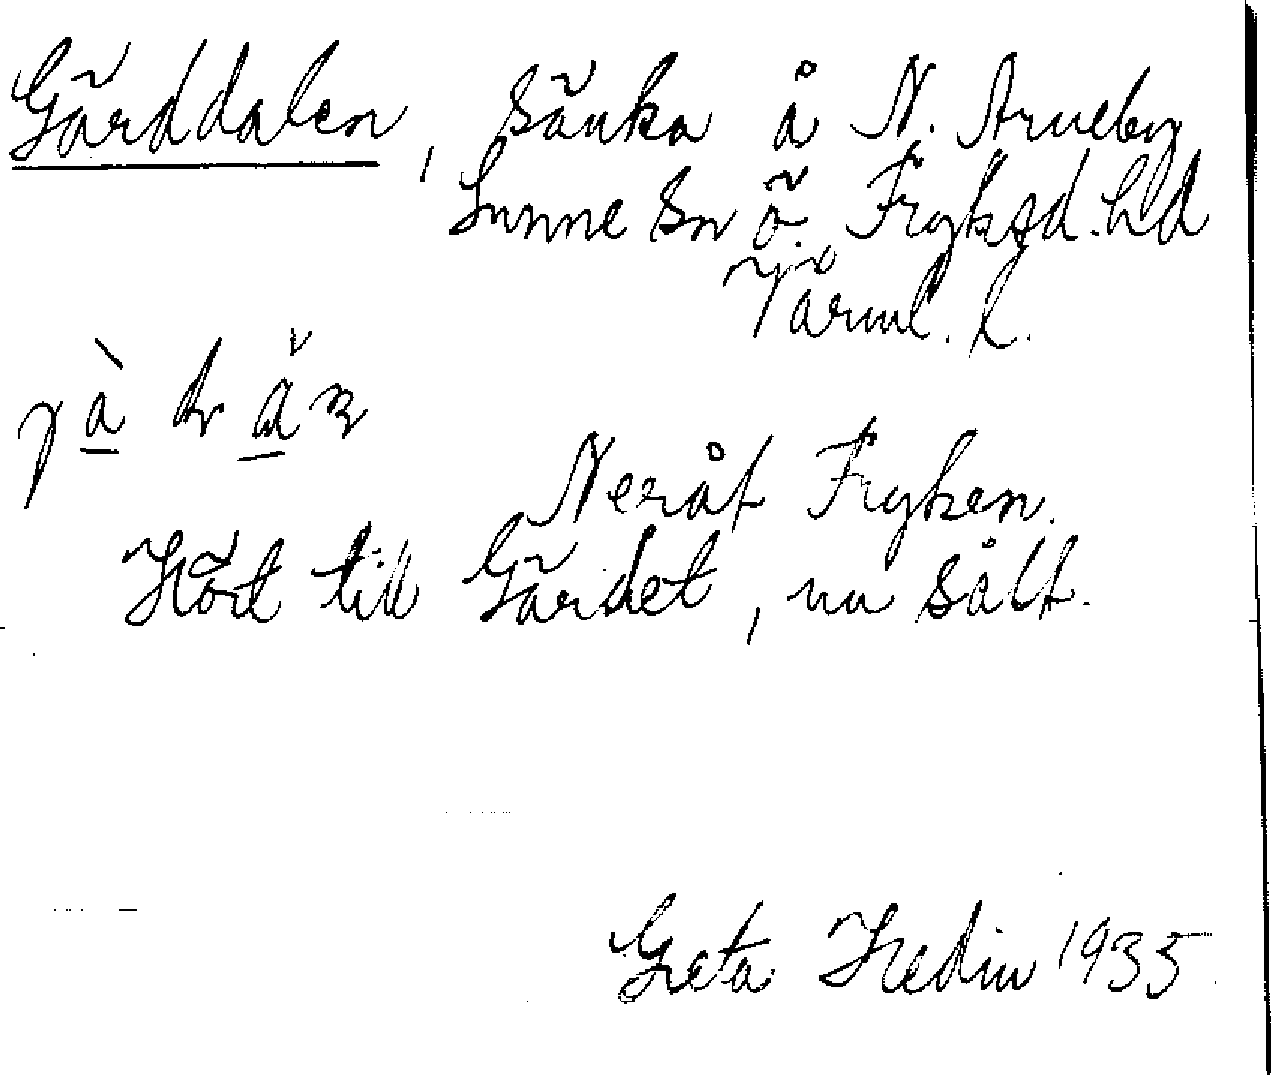 Gärddalen, Sänka å N. Arneby
Sunne Sn Ö. Fryksd. hd
Värml. l.
Neråt Fryken.
Hört till Gärdet, nu sålt.
Greta Hedin 1935.